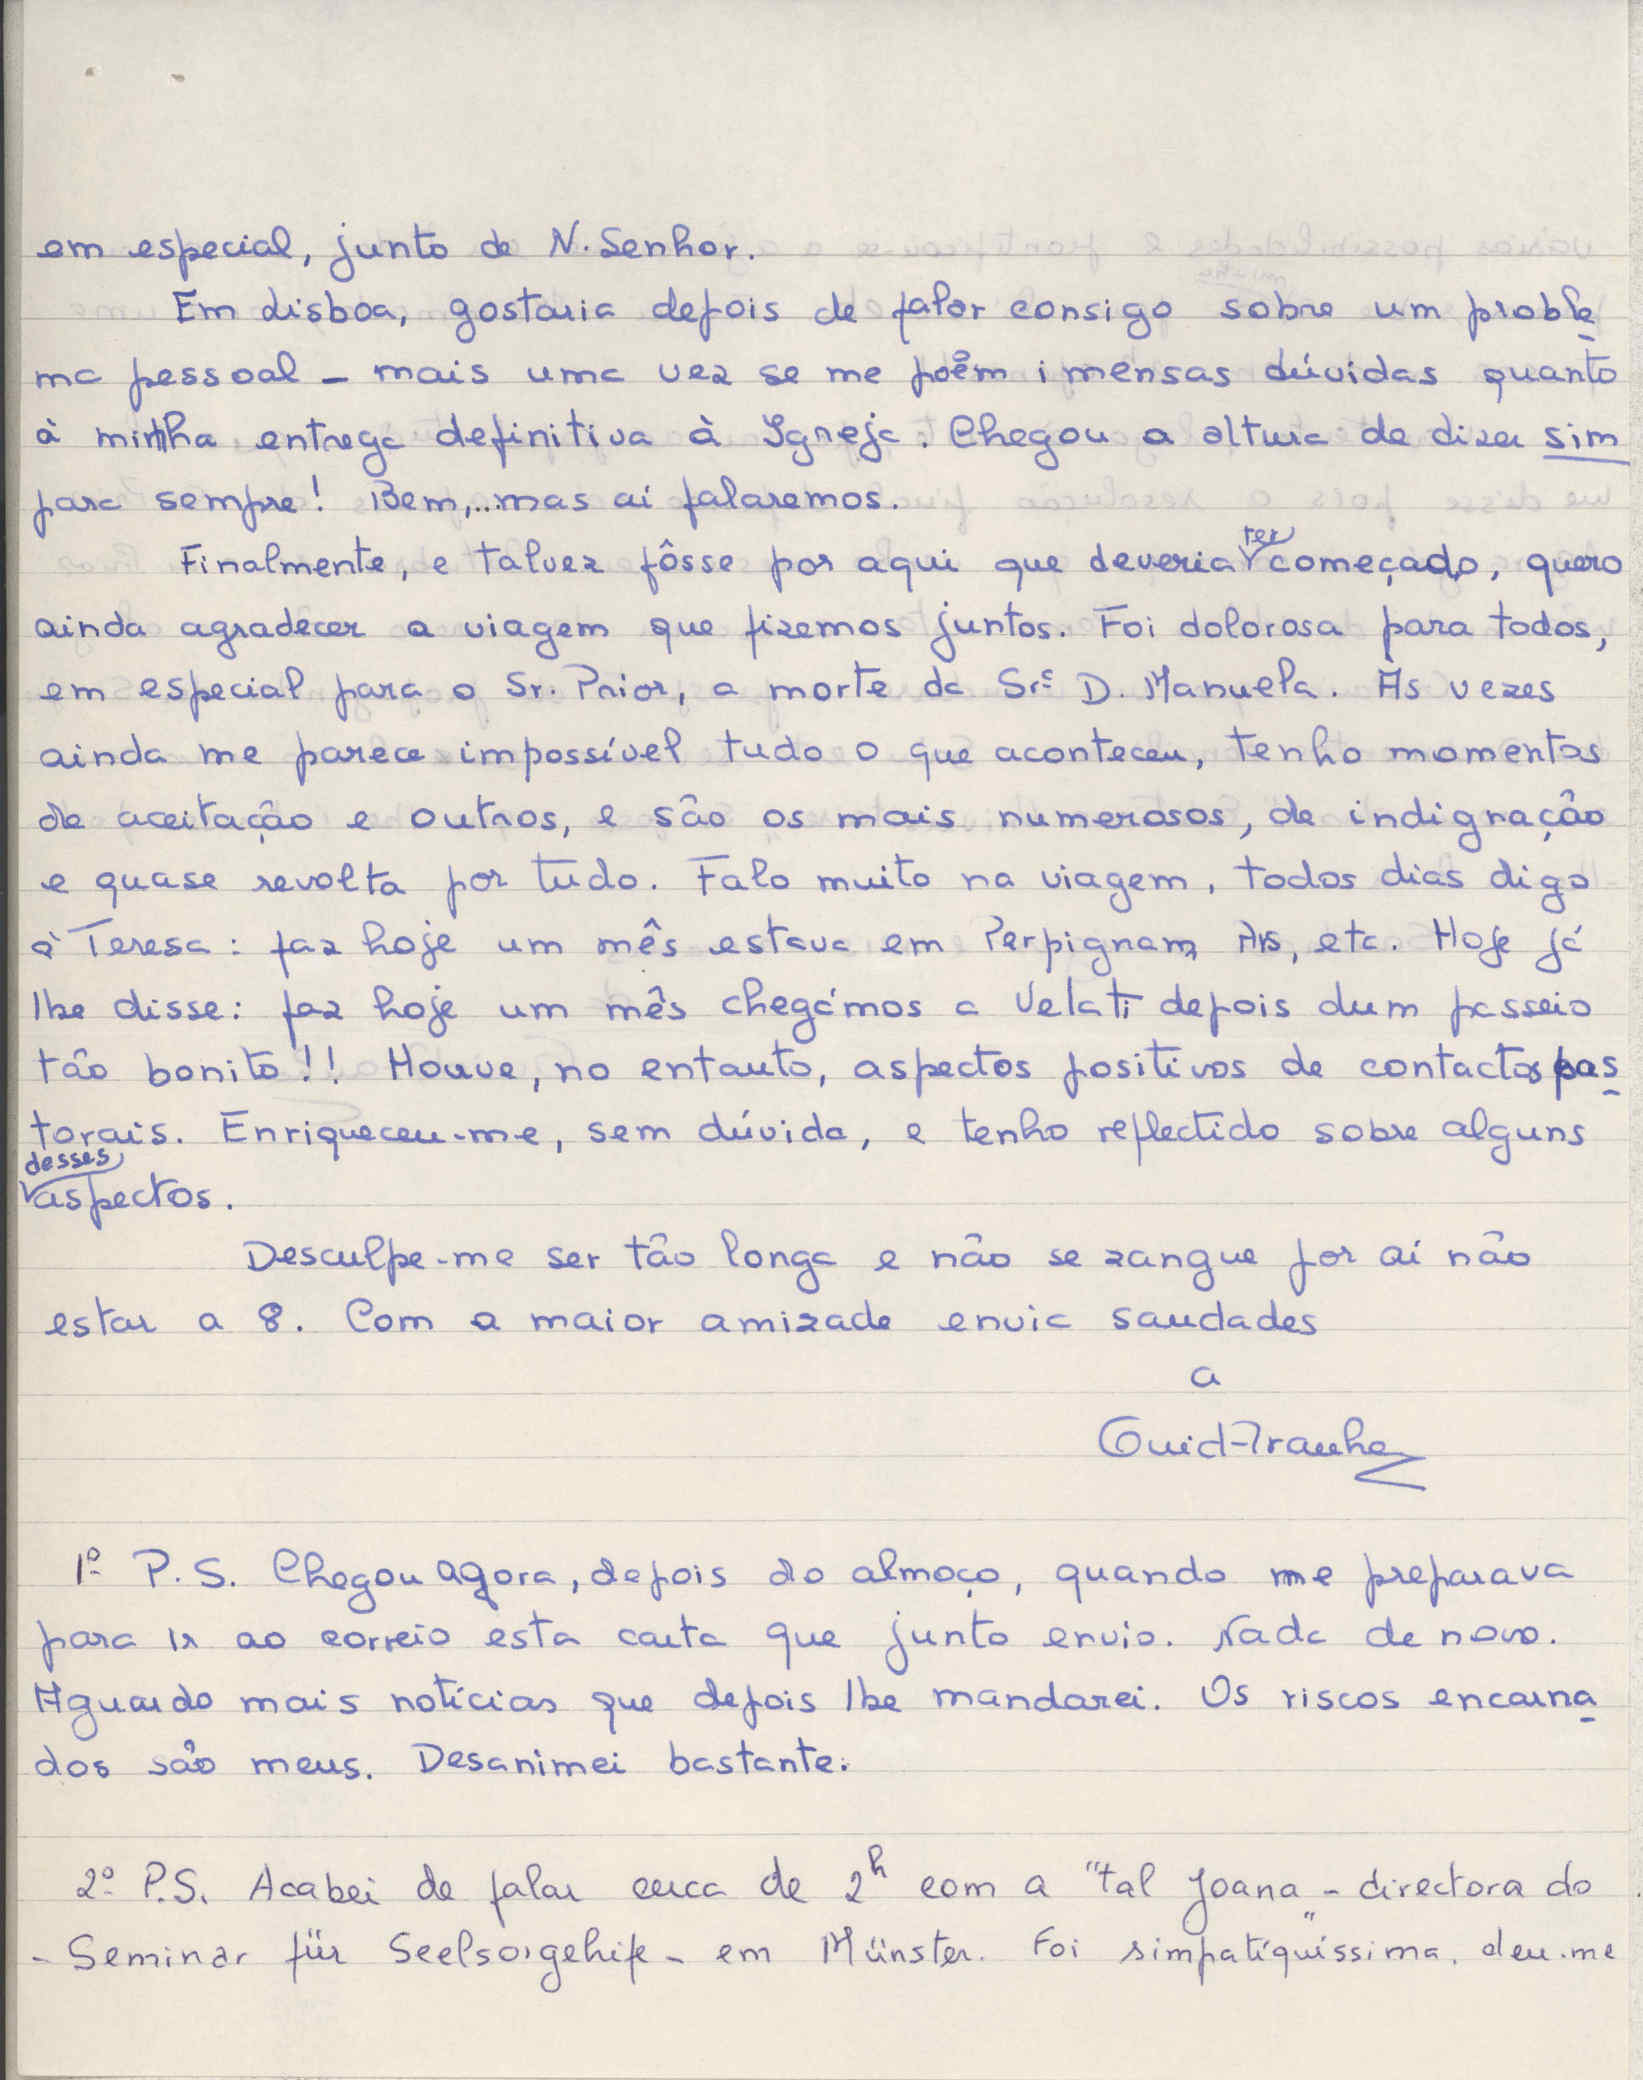 em especial, junto de N. Senhor.
Em Lisboa, gostaria depois de falar consigo sobre um proble
ma pessoal - mais uma vez se me põem imensas dúvidas quanto
à minha entrega definitiva à Igreja. Chegou a altura de dizer sim
para sempre! Bem,... mas aí falaremos.
Finalmente, e talvez fôsse por aqui que deveria ter começado, quero
ainda agradecer a viagem que fizemos juntos. Foi dolorosa para todos,
em especial para o Sr. Prior, a morte da Srª D. Manuela. Às vezes
ainda me parece impossível tudo o que aconteceu, tenho momentos
de aceitação e outros, e são os mais numerosos, de indignação
e quase revolta por tudo. Falo muito na viagem, todos dias digo
à Teresa: faz hoje um mês estava em Perpignam, Ars, etc. Hoje já
lhe disse: faz hoje um mês chegámos a Velati depois dum passeio
tão bonito!! Houve, no entanto, aspectos positivos de contactos pas
torais. Enriqueceu-me, sem dúvida, e tenho reflectido sobre alguns
desses aspectos.
Desculpe-me ser tão longa e não se zangue por aí não
estar a 8. Com a maior amizade envia saudades
a
1º P.S. Chegou agora, depois do almoço, quando me preparava
para ir ao correio esta carta que junto envio. Nada de novo.
Aguardo mais notícias que depois lhe mandarei. Os riscos encarna
dos são meus. Desanimei bastante.
2º P.S. Acabei de falar cerca de 2h com a "tal Joana" - directora do
- Seminar für Seelsorgehife - em Münster. Foi simpatiquíssima. deu-me